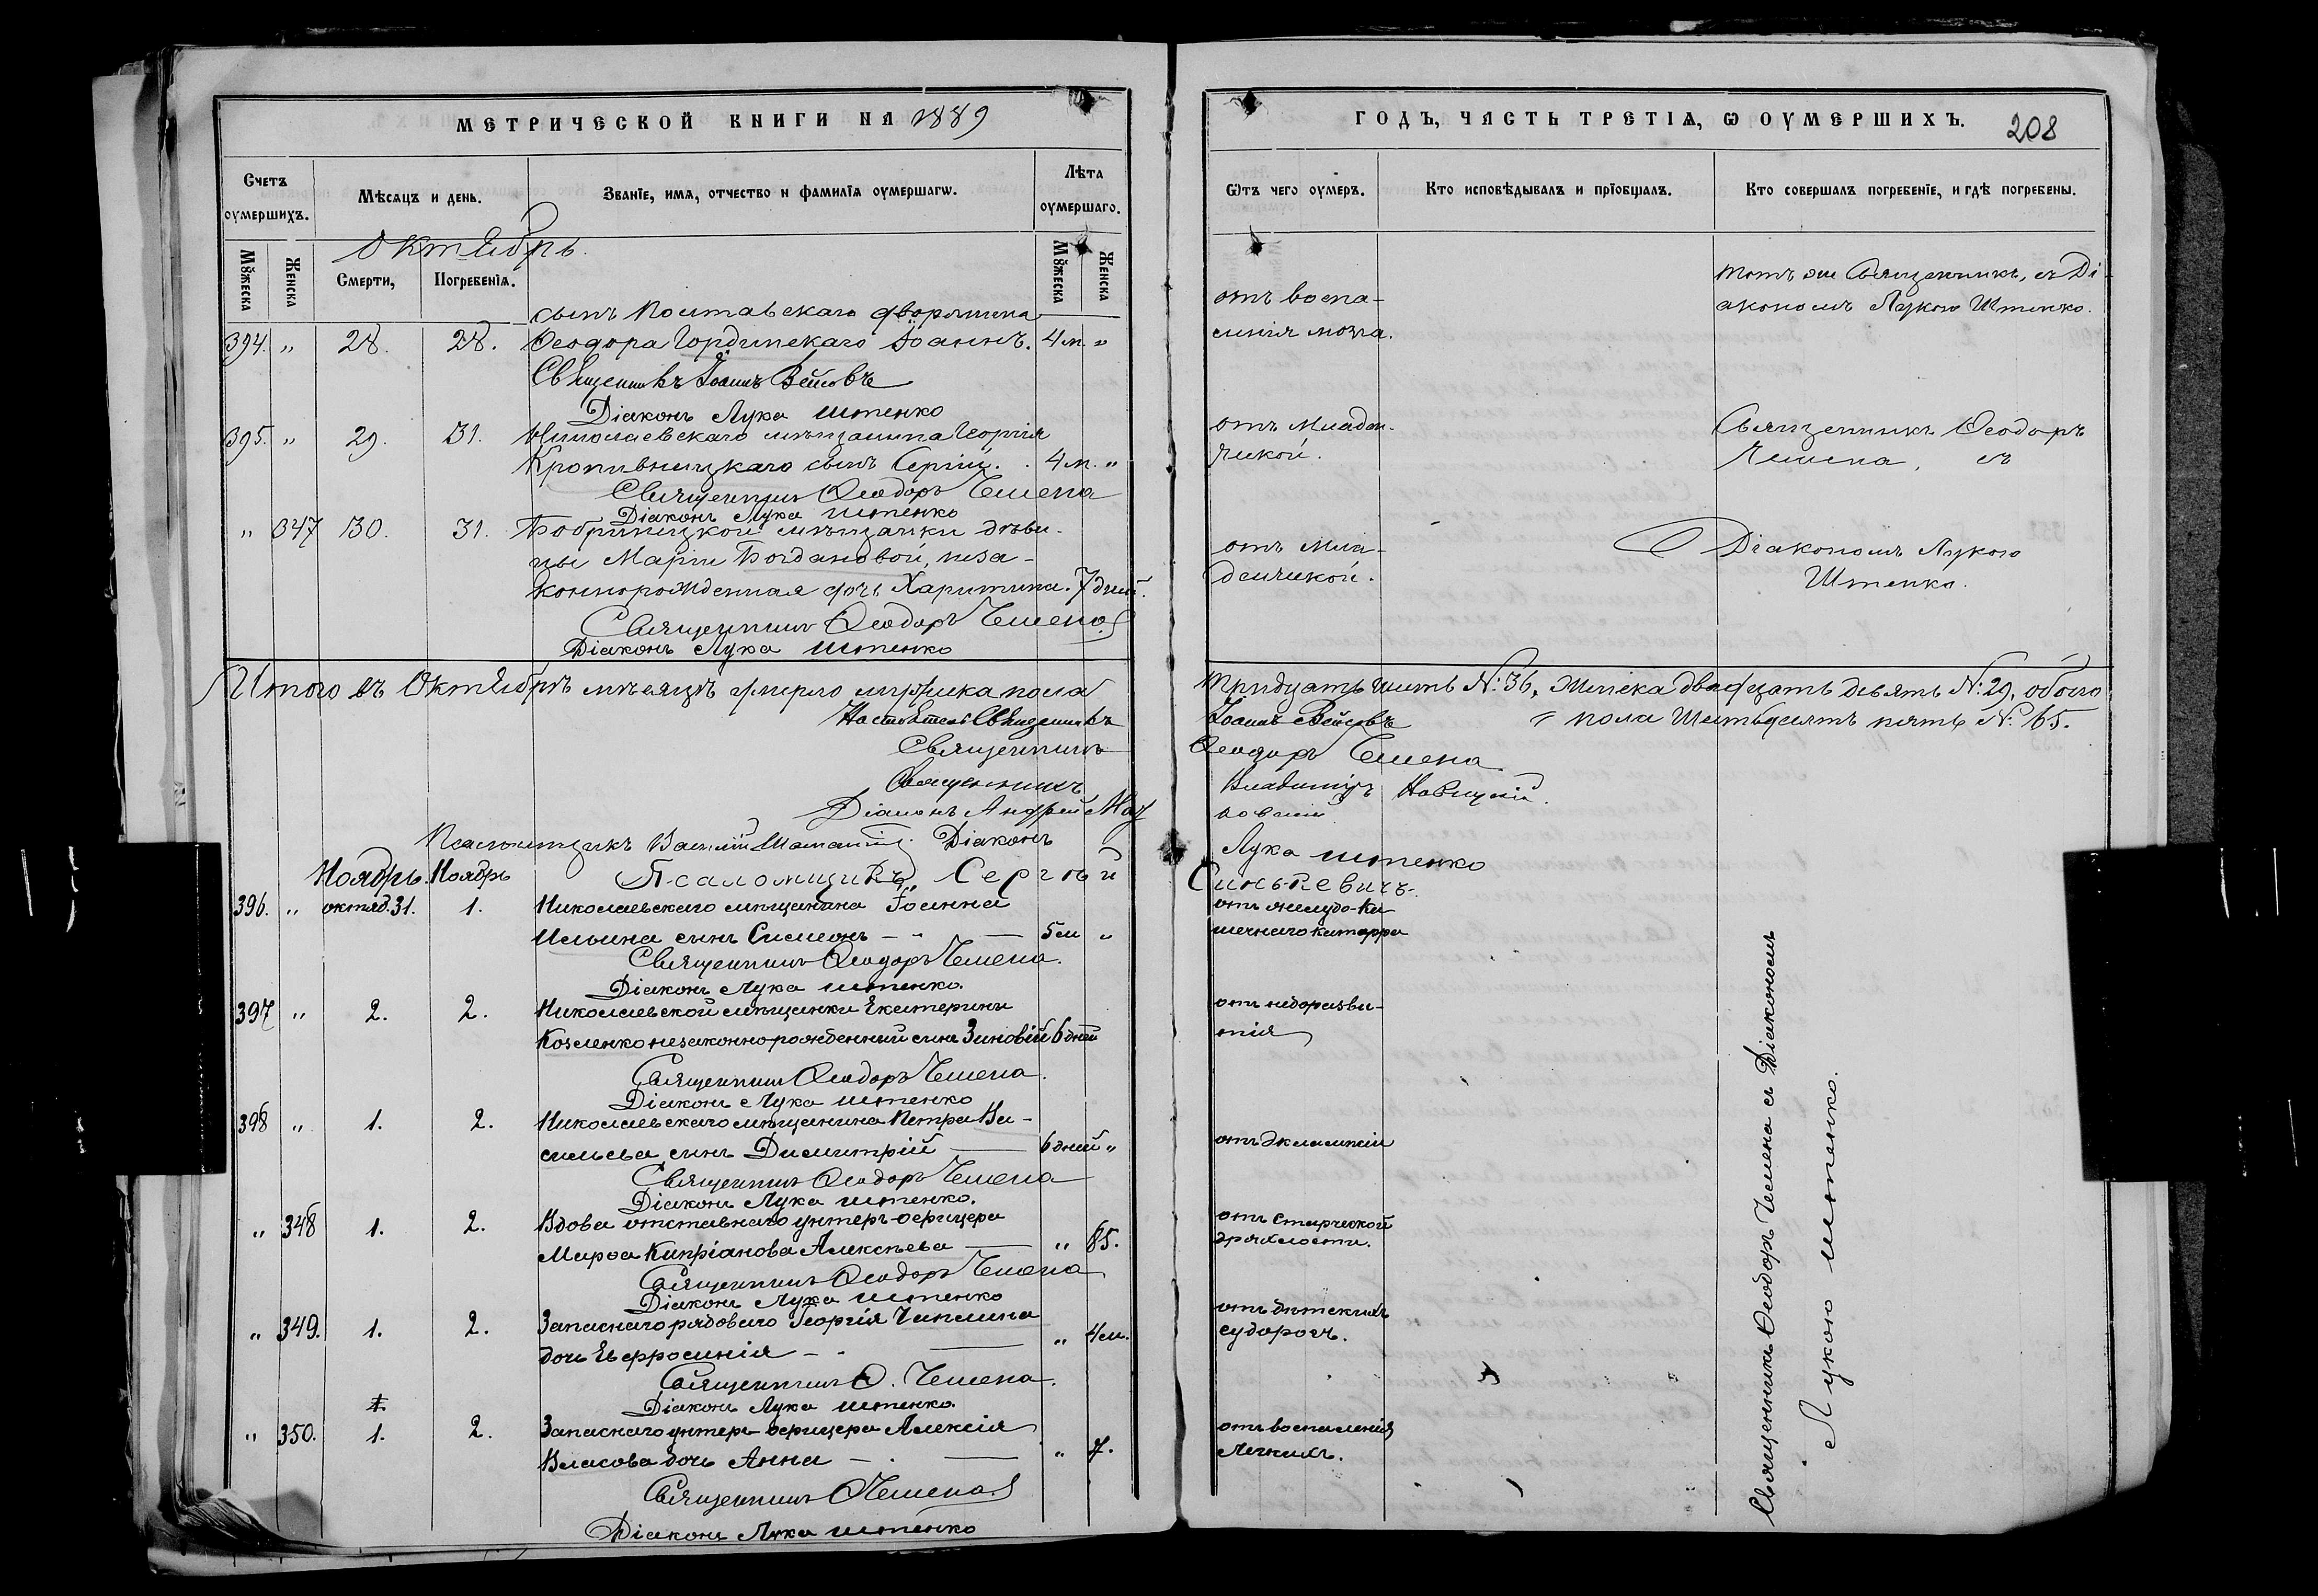 МЕТРИЧЕСКОЙ КНИГИ НА 1889
Счетъ оумершихъ.
Мѣсяцъ и день.
Званіе, имя, отчество и фамилія оумершагѡ.
Лѣта оумершаго.
Мꙋжеска
Женска
Октябрь.
Смерти,
Погребенія.
Мꙋжеска
Женска
сынъ Полтавскаго дворянина
394. " 28. 28. Ѳеодора Гординскаго Іоаннъ. 4 м. "
Священникъ Іоаннъ
Діаконъ Лука Штенко
395. " 29. 31. Николаевскаго мѣщанина Георгія
Кропивницкаго сынъ Сергій. 4 м. "
Священникъ Ѳеодоръ Чемена
Діаконъ Лука Штенко
" 347 30. 31. Бобринецкой мѣщанки дѣви-
цы Маріи Богдановой, неза-
коннорожденная дочь Харитина. 7 дней.
Священникъ Ѳеодоръ Чемена
Діаконъ Лука Штенко
Итого въ Октябрѣ мѣсяцѣ умерло мужска пола
Настоятель Священникъ
Священникъ
Священникъ
Діаконъ Андрей
Псаломщикъ Василій Діаконъ
Ноябрь. Ноябрь Псаломщикъ Сергѣй
396. " октяб. 31. 1. Николаевскаго мѣщанина Іоанна
Ильина сынъ Симеонъ 5 м "
Священникъ Ѳеодоръ Чемена.
Діаконъ Лука Штенко.
397 " 2. 2. Николаевской мѣщанки Екатерины
Козленко незаконнорожденный сынъ Зиновій 6 дней
Священникъ Ѳеодоръ Чемена.
Діаконъ Лука Штенко
398 " 1. 2. Николаевскаго мѣщанина Петра Ва-
сильева сынъ Димитрій 6 дней "
Священникъ Ѳеодоръ Чемена
Діаконъ Лука Штенко.
" 348 1. 2. Вдова отставнаго унтеръ-офицера
Марѳа Кипріанова Алексѣева " 85.
Священникъ Ѳеодоръ Чемена
Діаконъ Лука Штенко
" 349. 1. 2. Запаснаго рядоваго Георгія
дочь Евфросинія " 4 м.
Священникъ Ѳ. Чемена.
Діаконъ Лука Штенко.
" 350. 1. 2. Запаснаго унтеръ-офицера Алексія
Власова дочь Анна " 7.
Священникъ Ѳ Чемена
Діаконъ Лука Штенко
ГОДЪ, ЧАСТЬ ТРЕТІЯ, Ѡ ОУМЕРШИХЪ. 208
Ѿтъ чего оумеръ.
Кто исповѣдывалъ и прїобщалъ.
Кто совершалъ погребенїе, и гдѣ погребены.
отъ воспа-
ленія мозга.
Тотъ же Священникъ, съ Ді-
акономъ Лукою Штенко.
отъ младен-
ческой.
Священникъ Ѳеодоръ
Чемена, съ
отъ мла-
денческой.
Діакономъ Лукою
Штенко.
Тридцать шесть №: 36, женска двадцать девять №: 29, обоего
пола Шестьдесятъ пять №: 65.
Іоаннъ
Ѳеодоръ Чемена
Владиміръ Новицкій.
Лука Штенко
Синькевичъ.
отъ желудо-ки
шечнаго катарра
отъ недоразви-
тія
отъ эклампсіи
отъ старческой
дряхлости.
отъ дѣтскихъ
судорогъ.
отъ воспаленія
легкихъ.
Священникъ Ѳеодоръ Чемена съ Діакономъ
Лукою Штенко.